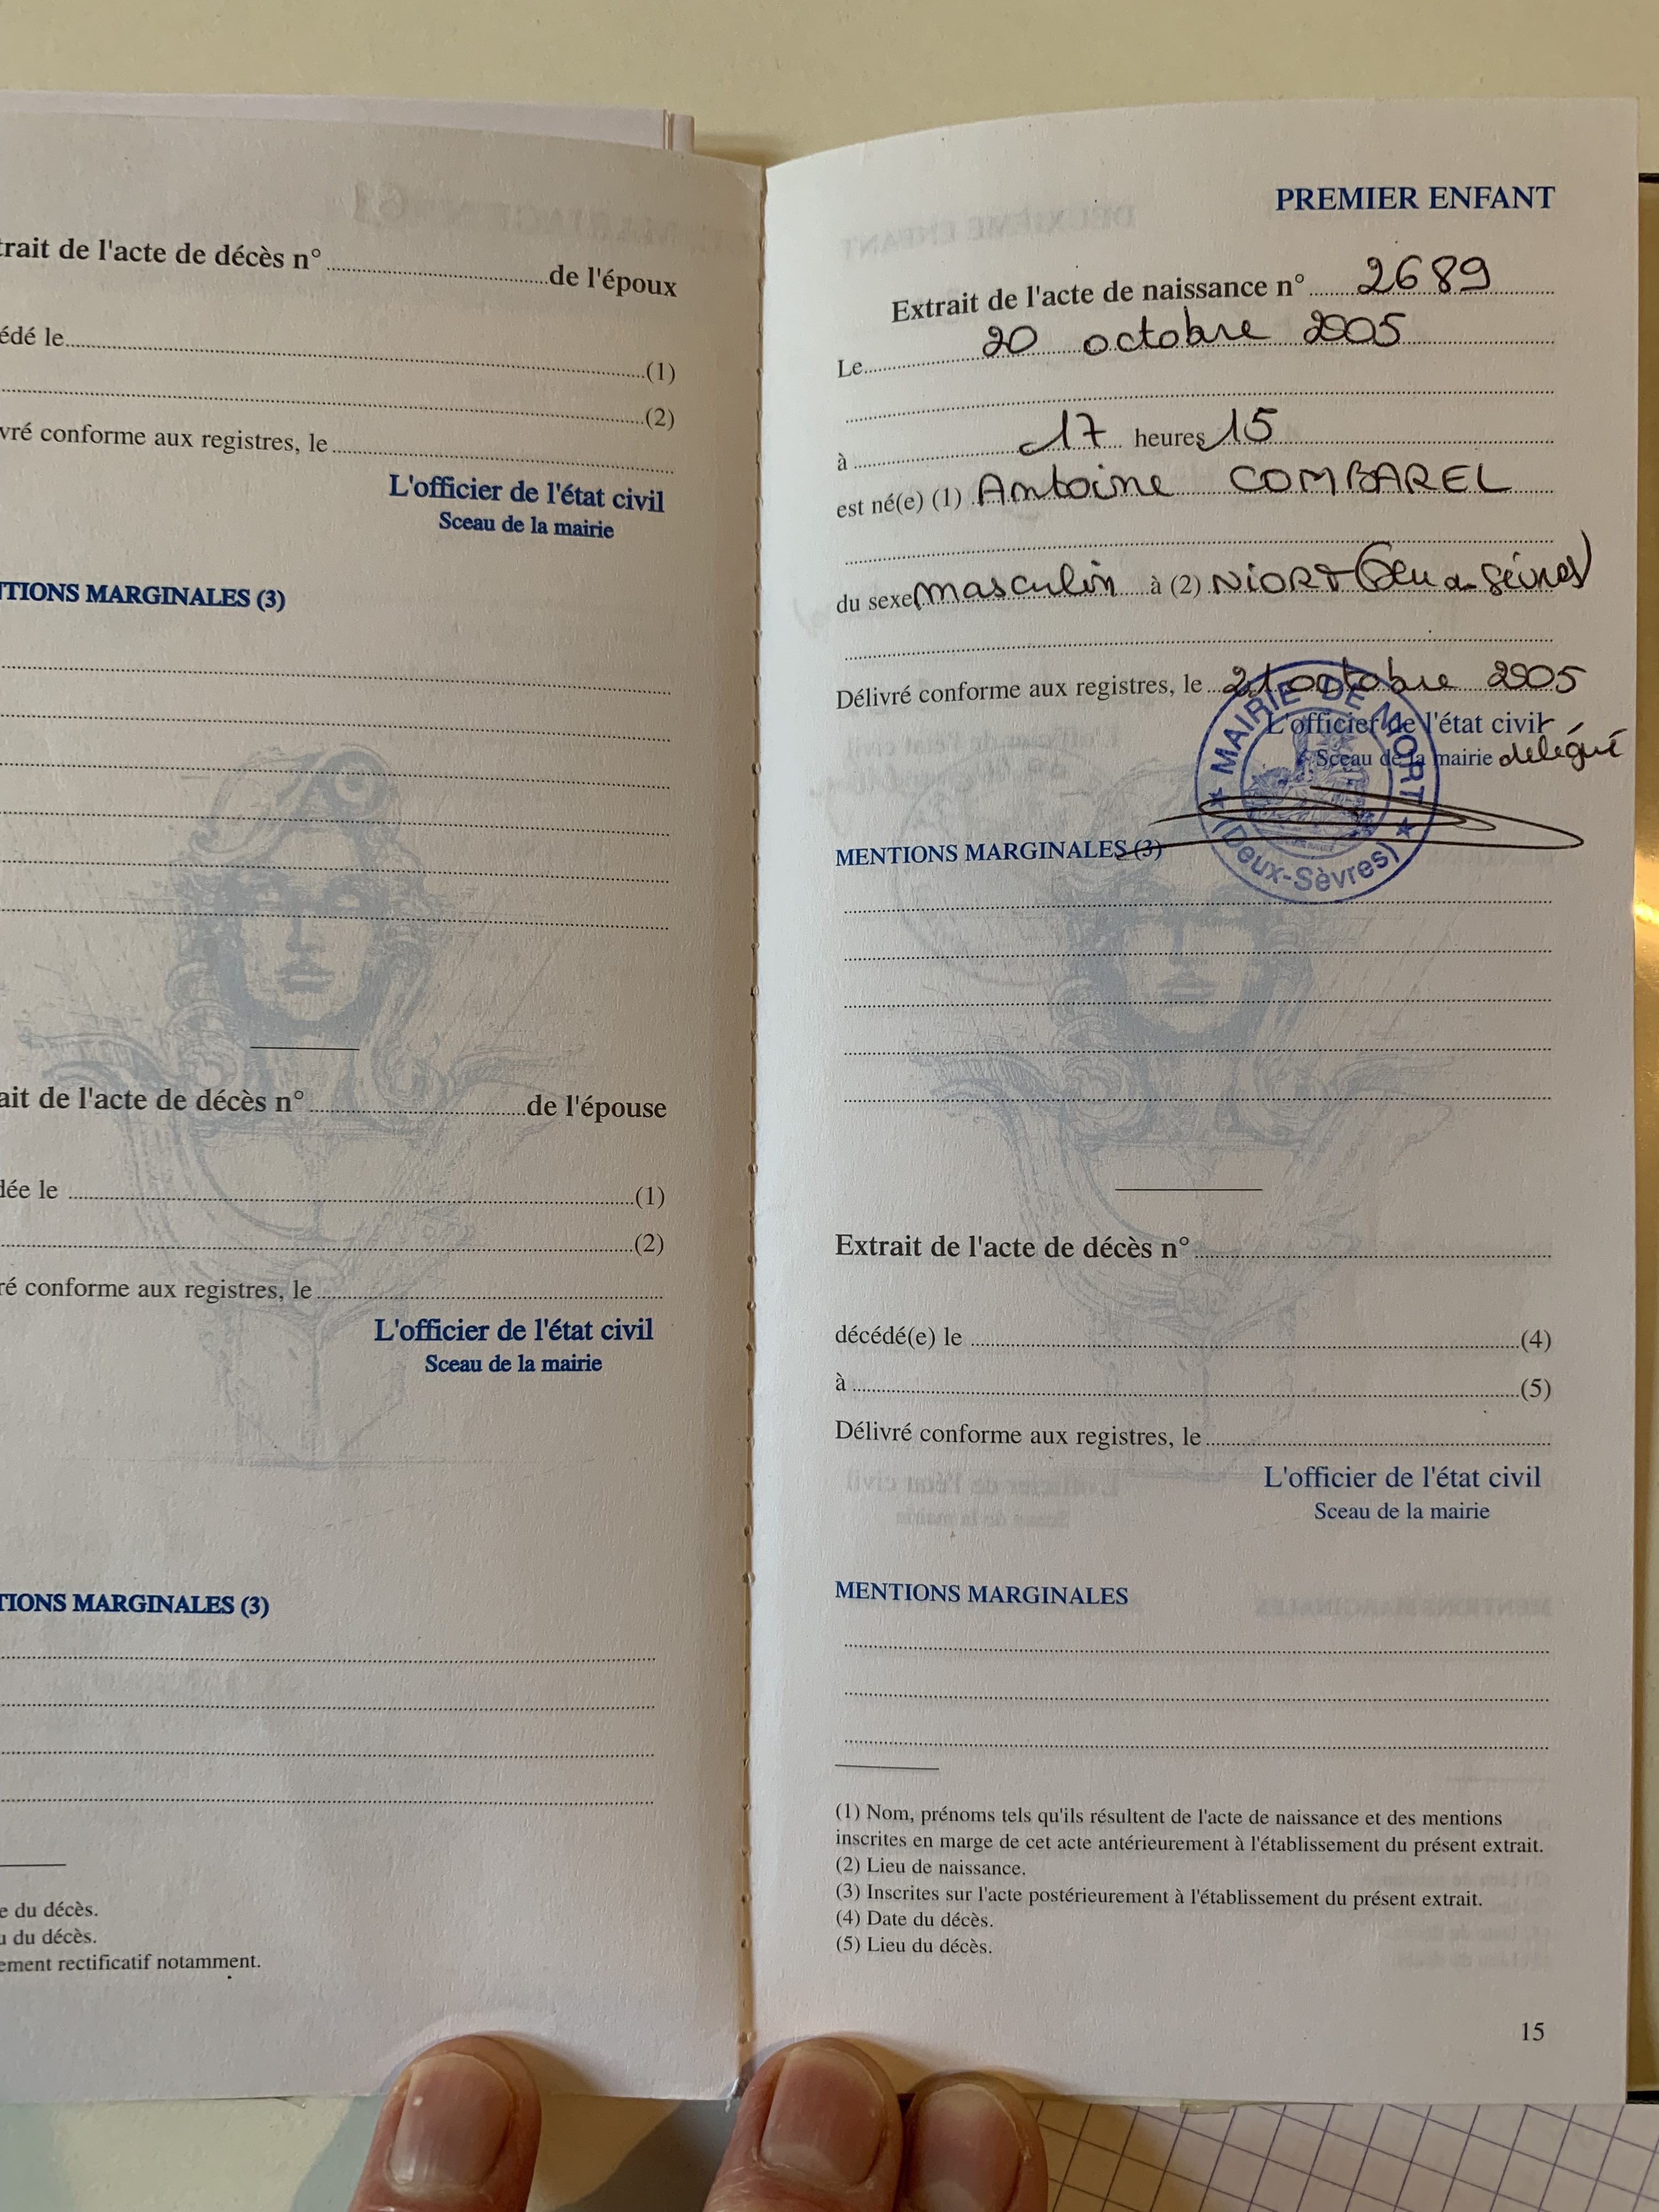 trait de l'acte de décès n° de l'époux
édé le (1)
(2)
vré conforme aux registres, le
L'officier de l'état civil
Sceau de la mairie
TIONS MARGINALES (3)
ait de l'acte de décès n° de l'épouse
dée le (1)
(2)
ré conforme aux registres, le
L'officier de l'état civil
Sceau de la mairie
TIONS MARGINALES (3)
e du décès.
u du décès.
ement rectificatif notamment.
PREMIER ENFANT
Extrait de l'acte de naissance n° 2689
Le 20 octobre 2005
à 17 heures 15
est né(e) (1) Antoine COMBAREL
du sexe masculin à (2) NIORT (Deux-Sèvres)
Délivré conforme aux registres, le 21 octobre 2005
L'officier de l'état civil
Sceau de la mairie délégué
MAIRIE DE NIORT
(Deux-Sèvres)
MENTIONS MARGINALES (3)
Extrait de l'acte de décès n°
décédé(e) le (4)
à (5)
Délivré conforme aux registres, le
L'officier de l'état civil
Sceau de la mairie
MENTIONS MARGINALES
(1) Nom, prénoms tels qu'ils résultent de l'acte de naissance et des mentions
inscrites en marge de cet acte antérieurement à l'établissement du présent extrait.
(2) Lieu de naissance.
(3) Inscrites sur l'acte postérieurement à l'établissement du présent extrait.
(4) Date du décès.
(5) Lieu du décès.
15